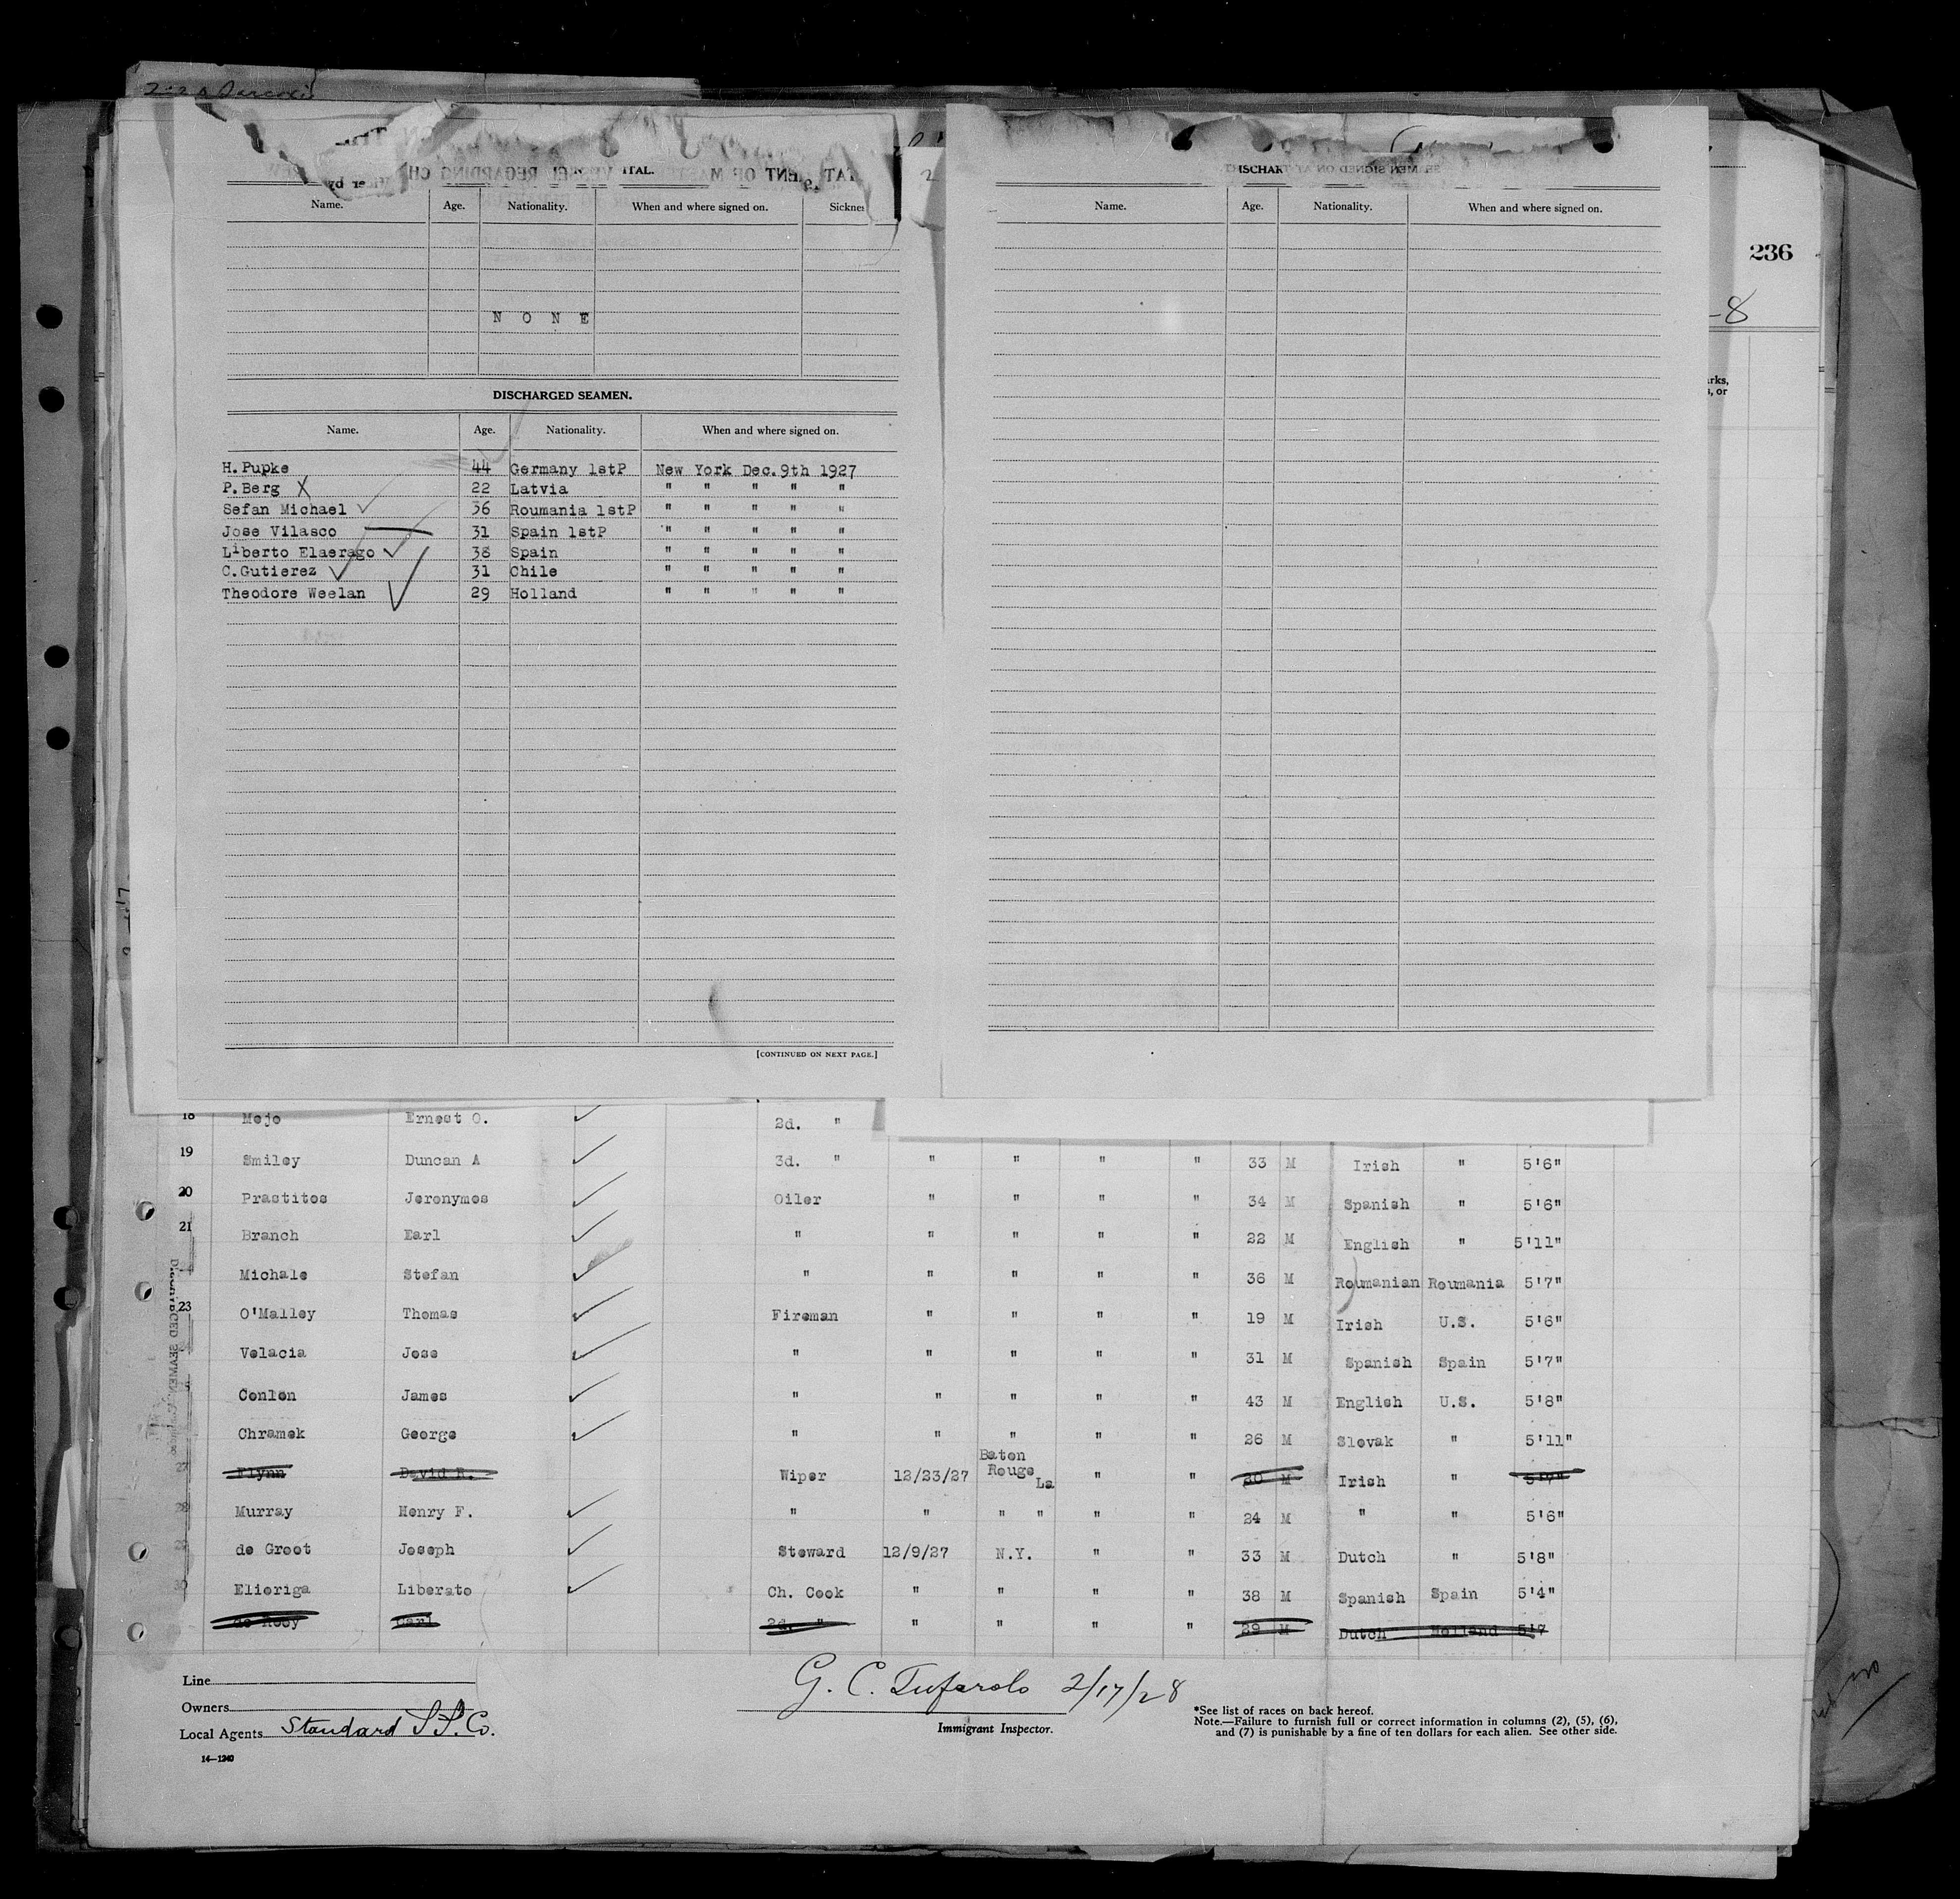 ITAL.
Name. Age. Nationality. When and where signed on. Sicknes
N O N E
DISCHARGED SEAMEN.
Name. Age. Nationality. When and where signed on.
H.Pupke 44 Germany 1stP New York Dec.9th 1927
P.Berg X 22 Latvia " " " " "
Sefan Michael 36 Roumania 1stP " " " " "
Jose Vilasco 31 Spain 1stP " " " " "
Liberto Elaerago 38 Spain " " " " "
C.Gutierez 31 Chile " " " " "
Theodore Weelan 29 Holland " " " " "
[CONTINUED ON NEXT PAGE.]
DISCHAR
Name. Age. Nationality. When and where signed on.
236
-8
rks,
, or
18 Mejo Ernest O. 2d. "
19 Smiley Duncan A 3d. " " " " " 33 M Irish " 5'6"
20 Prastitos Jeronymos Oiler " " " " 34 M Spanish " 5'6"
21 Branch Earl " " " " " 22 M English " 5'11"
Michale Stefan " " " " " 36 M Roumanian Roumania 5'7"
23 O'Malley Thomas Fireman " " " " 19 M Irish U.S. 5'6"
Velacia Jose " " " " " 31 M Spanish Spain 5'7"
Conlon James " " " " " 43 M English U.S. 5'8"
Chramek George " " " " " 26 M Slovak " 5'11"
27 Flynn David R. Wiper 12/23/27 Baton Rouge La " " 30 M Irish " 5'7"
28 Murray Henry F. " " " " " " 24 M " " 5'6"
29 de Groot Joseph Steward 12/9/27 N.Y. " " 33 M Dutch " 5'8"
30 Elioriga Liberato Ch. Cook " " " " 38 M Spanish Spain 5'4"
de Rooy Carl 2d. " " " " " 29 M Dutch Holland 5'7
Line
Owners
Local Agents Standard S.S. Co.
14—1240
G. C. Tufarolo 2/17/28
Immigrant Inspector.
*See list of races on back hereof.
Note.—Failure to furnish full or correct information in columns (2), (5), (6),
and (7) is punishable by a fine of ten dollars for each alien. See other side.